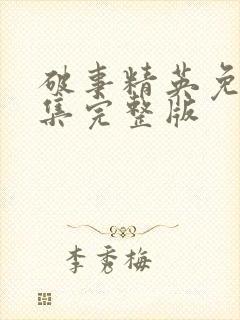 破事精英免
集完整版
李秀梅